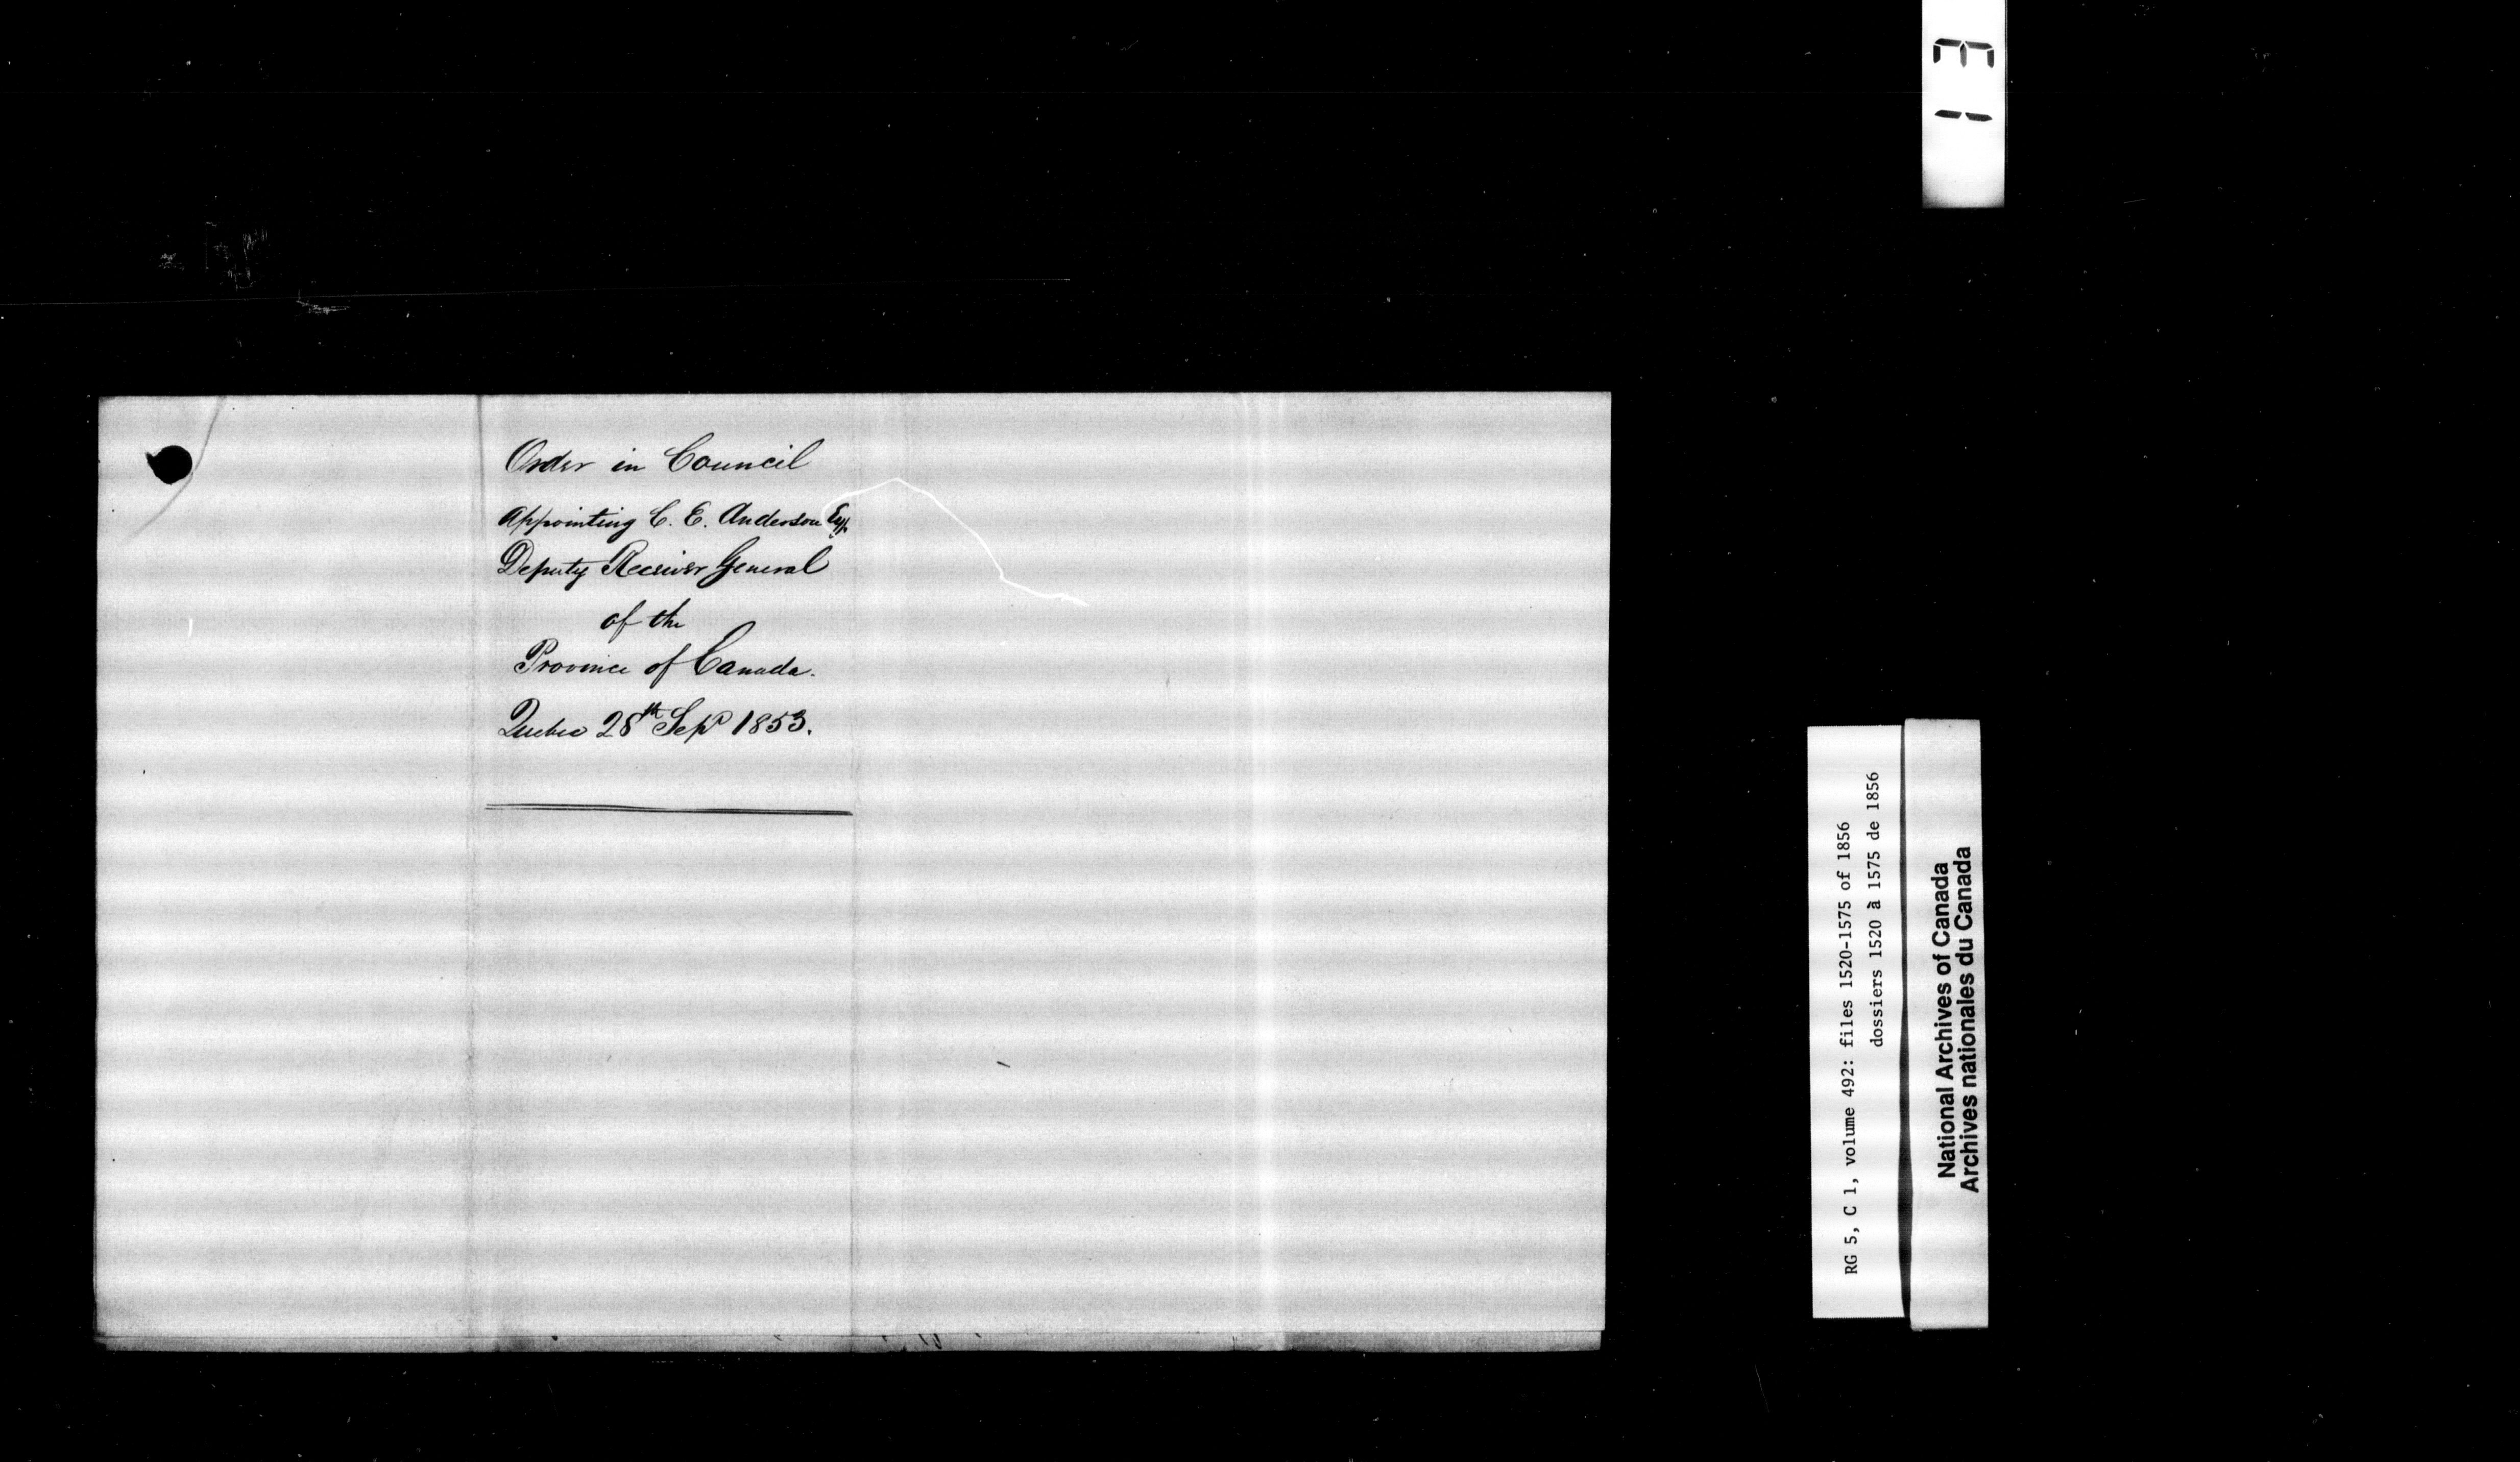 Order in Council
Appointing C. E. Anderson Esq.
Deputy Receiver General
of the
Province of Canada.
Quebec 28th Sepr 1853.
RG 5, C 1, volume 492: files 1520-1575 of 1856
dossiers 1520 à 1575 de 1856
National Archives of Canada
Archives nationales du Canada